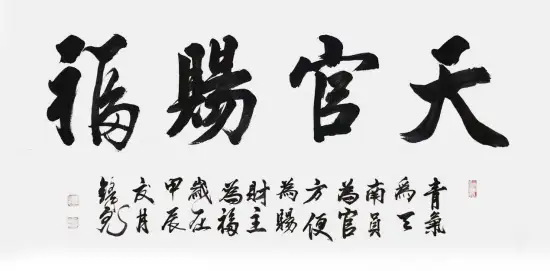 天官賜福
青氣
為天
南員
為官
方便
為賜
財主
為福
歲在
甲辰
月